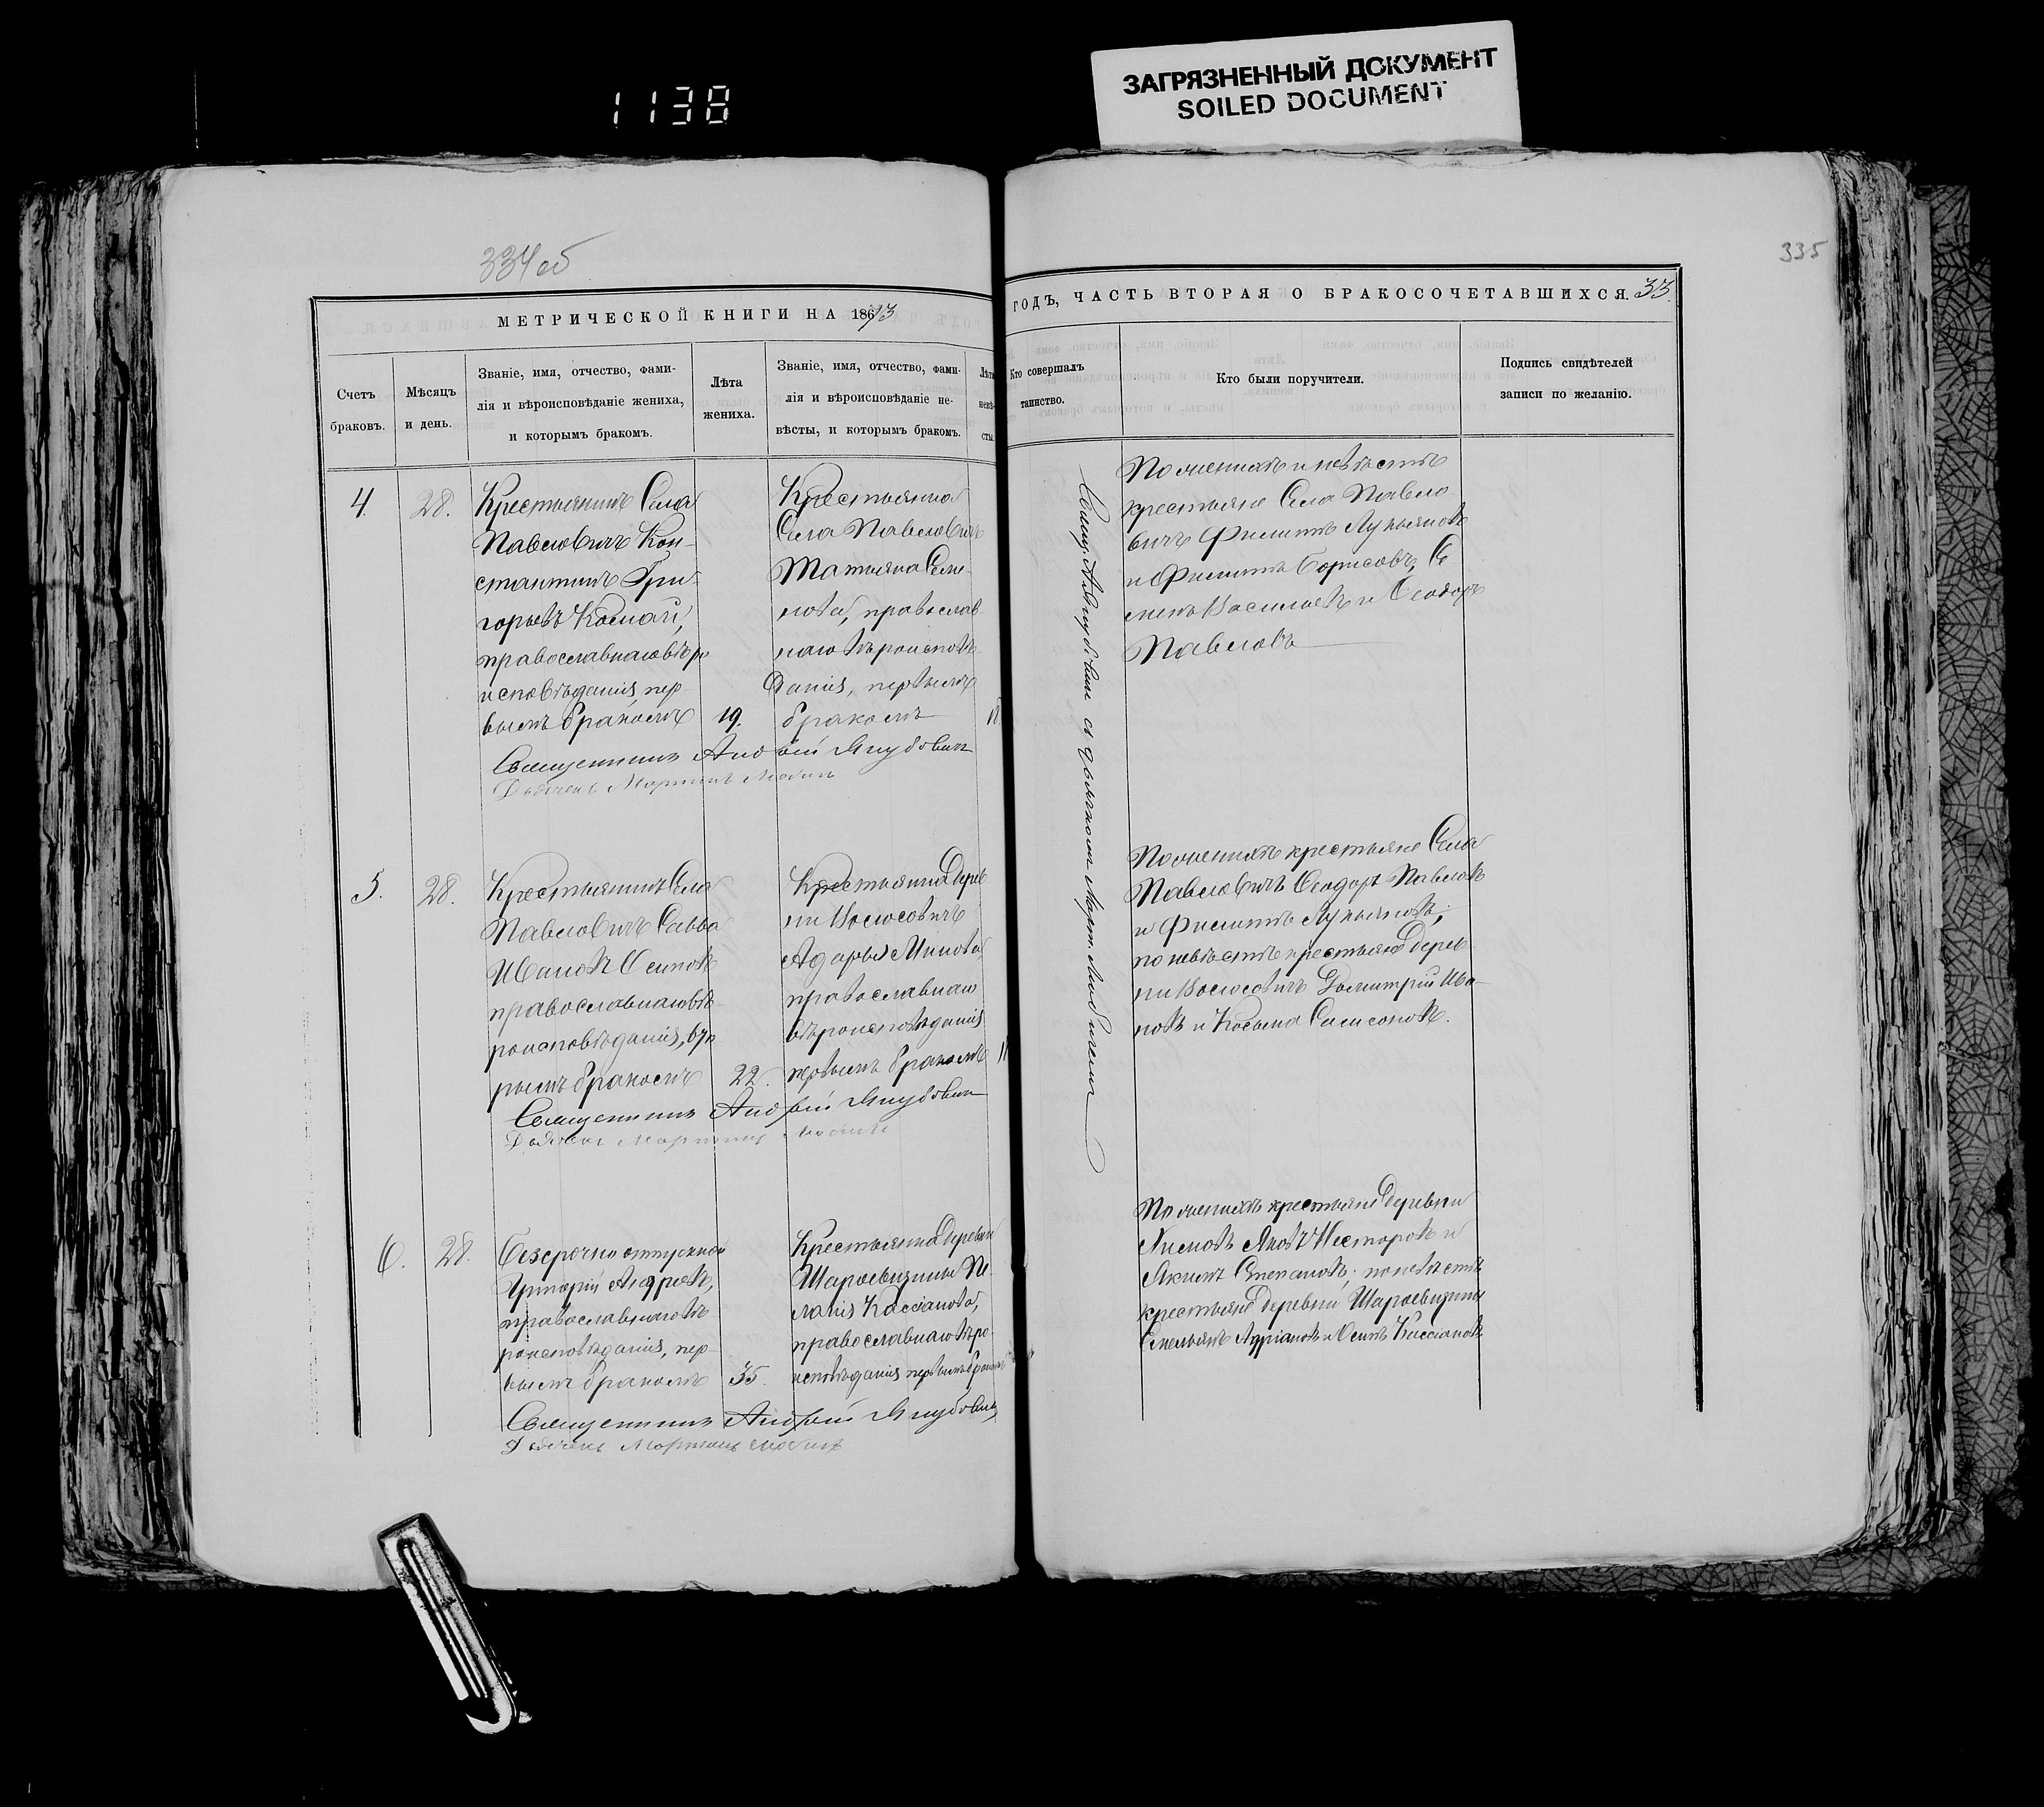 1138
ЗАГРЯЗНЕННЫЙ ДОКУМЕНТ
SOILED DOCUMENT
334 об
335
МЕТРИЧЕСКОЙ КНИГИ НА 1873
ГОДЪ, ЧАСТЬ ВТОРАЯ О БРАКОСОЧЕТАВШИХСЯ. 33
Счетъ
браковъ.
Мѣсяцъ
и день.
Званіе, имя, отчество, фами-
лія и вѣроисповѣданіе жениха,
и которымъ бракомъ.
Лѣта
жениха.
Званіе, имя, отчество, фами-
лія и вѣроисповѣданіе не-
вѣсты, и которымъ бракомъ.
Лѣта
невѣ-
сты.
Кто совершалъ
таинство.
Кто были поручители.
Подпись свидѣтелей
записи по желанію.
4.
28.
Крестьянинъ Села
Павловичъ Кон-
стантинъ Гри-
горьевъ
православнаго вѣро
исповѣданія пер-
вымъ бракомъ
19.
Крестьянка
Села Павловичъ
Татьяна Семе-
нова, православ-
наго вѣроисповѣ-
данія, первымъ
бракомъ
18
Священникъ Андрей Якубовичъ
По женихѣ и невѣстѣ
крестьяне Села Павло-
вичъ Филиппъ Лукьяновъ
и Филиппъ Борисовъ, Се
менъ Васильевъ и Ѳеодоръ
Павловъ
5.
28.
Крестьянинъ Села
Павловичъ Савва
Ивановъ Осиповъ
православнаго вѣ-
роисповѣданія, вто
рымъ бракомъ
22.
Крестьянка Дерев
ни
Минова,
православнаго
вѣроисповѣданія
первымъ бракомъ
Священникъ Андрей Якубовичъ
По женихѣ крестьяне Села
Павловичъ Ѳеодоръ Павловъ
и Филиппъ Лукьяновъ;
по невѣстѣ крестьяне Дерев
ни Димитрій Ива-
новъ и Косьма Самсоновъ.
6.
28.
Безсрочно отпускной
Григорій Андреевъ,
православнаго вѣ
роисповѣданія, пер-
вымъ бракомъ
35.
Крестьянка Деревни
Шароевщины Пе-
лагія Кассіанова,
православнаго вѣро-
исповѣданія первымъ бракомъ
Священникъ Андрей Якубовичъ
По женихѣ крестьяне Деревни
Яковъ Несторовъ и
Якимъ Степановъ; по невѣстѣ
крестьяне Деревни Шароевщины
Емельянъ Адріановъ и Осипъ Кассіановъ